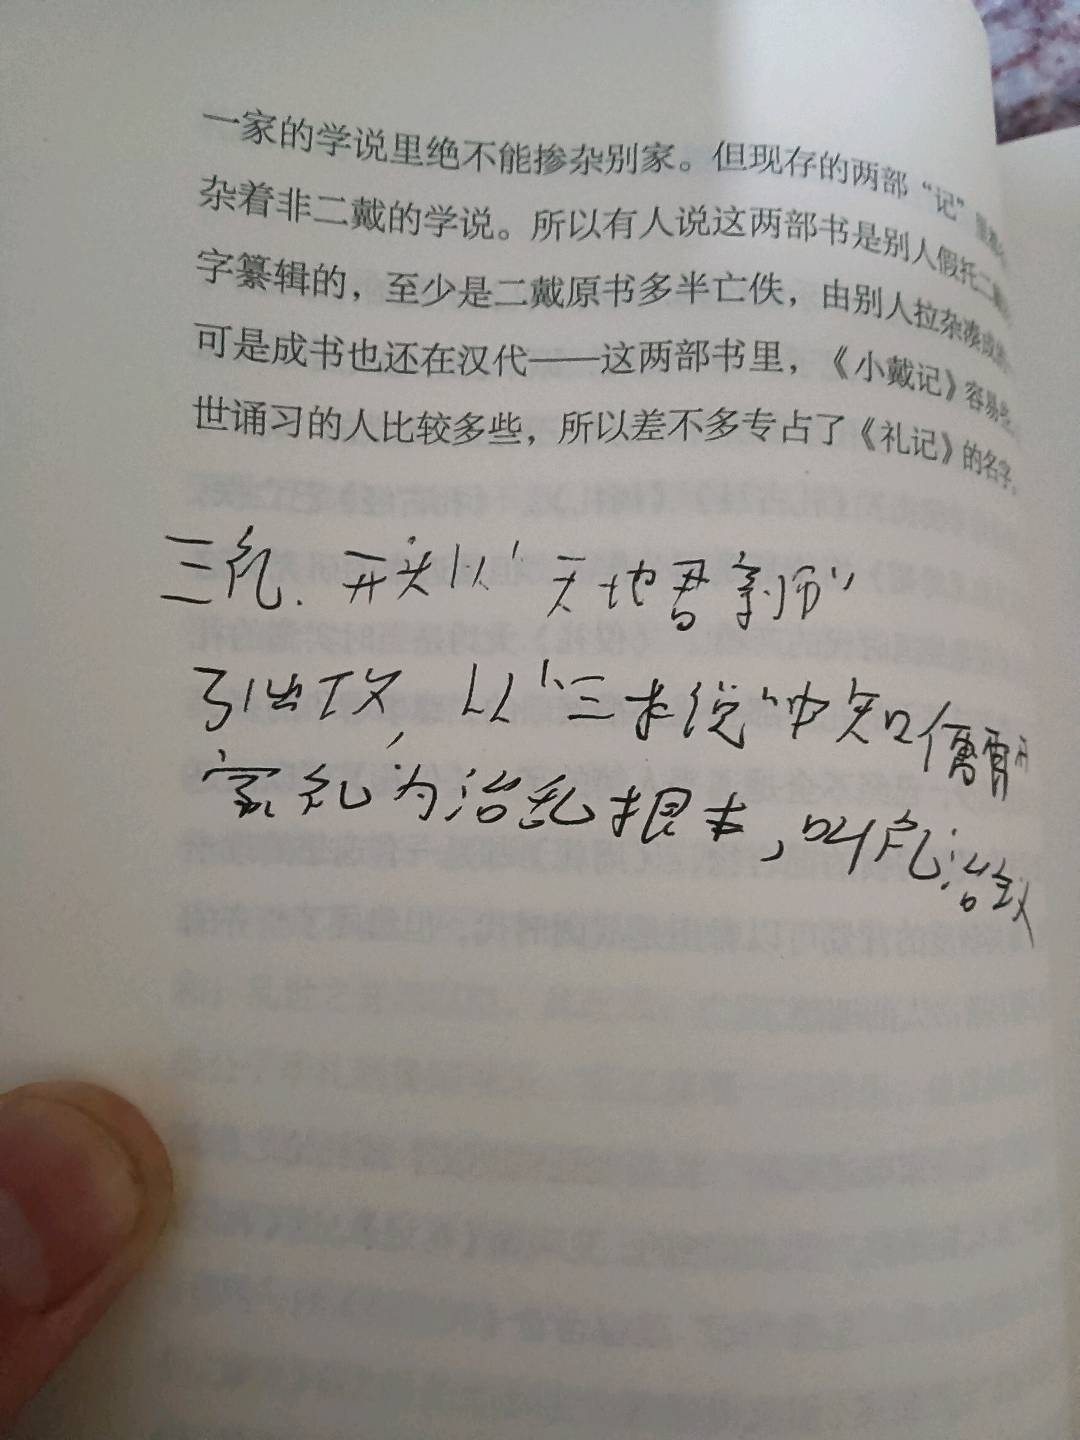 一家的学说里绝不能掺杂别家。但现存的两部“记”里
杂着非二戴的学说。所以有人说这两部书是别人假托二戴
字纂辑的，至少是二戴原书多半亡佚，由别人拉杂凑成
可是成书也还在汉代——这两部书里，《小戴记》容易
世诵习的人比较多些，所以差不多专占了《礼记》的名字。
三礼. 开头以“天地君亲师”
引出下文，以“三本说”中知儒
家礼为治乱根本，叫礼治